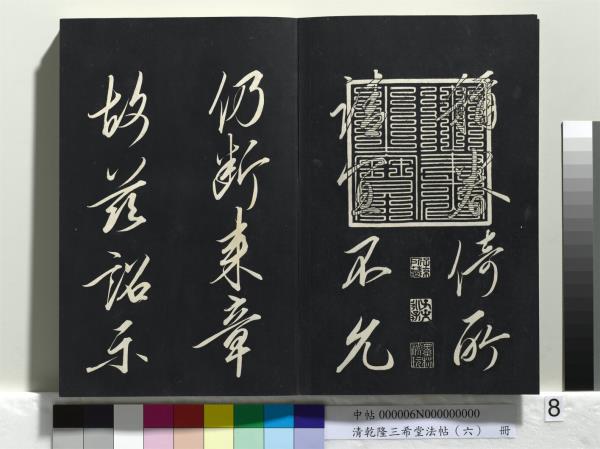 倚所
請宜不允
仍斷來章
故茲詔示
中帖 000006N000000000
清乾隆三希堂法帖(六) 冊
8